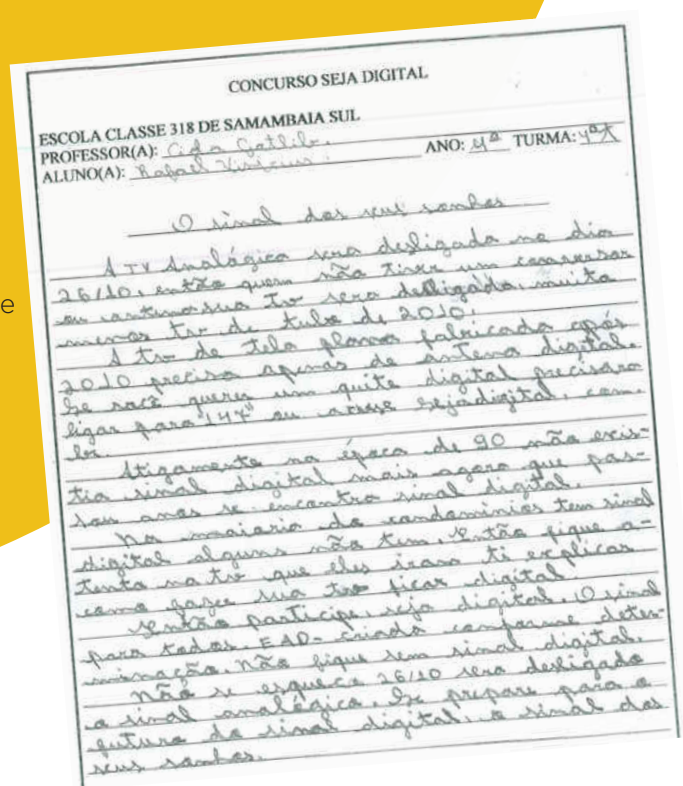 CONCURSO SEJA DIGITAL
ESCOLA CLASSE 318 DE SAMAMBAIA SUL
PROFESSOR(A): Cida Gatlib.
ANO: 4ª TURMA: 4ª A
ALUNO(A): Rafael Vinícius.
O sinal dos seus sonhos
A TV Analógica sera desligada no dia
26/10, então quem não tiver um conversor
ou antena sua tv sera desligada, muita
menos tv de tubo de 2010.
A tv de tela plana fabricada após
2010 precisa apenas de antena digital.
Se você queres um quite digital precisara
ligar para "147" ou acesse sejadigital.com.
br
Atigamente na época de 90 não exis-
tia sinal digital mais agora que pas-
sou anos se encontra sinal digital.
Na maioria de condominios tem sinal
digital alguns não tem. Então fique a-
tento na tv que eles iram ti explicar
como fazer sua tv ficar digital.
Então participe, seja digital. O sinal
para todos. EAD- criada conforme deter-
minação. Não fique sem sinal digital.
Não se esqueça 26/10 sera desligado
o sinal analógico. Se prepare para o
futuro do sinal digital, o sinal dos
seus sonhos.
e